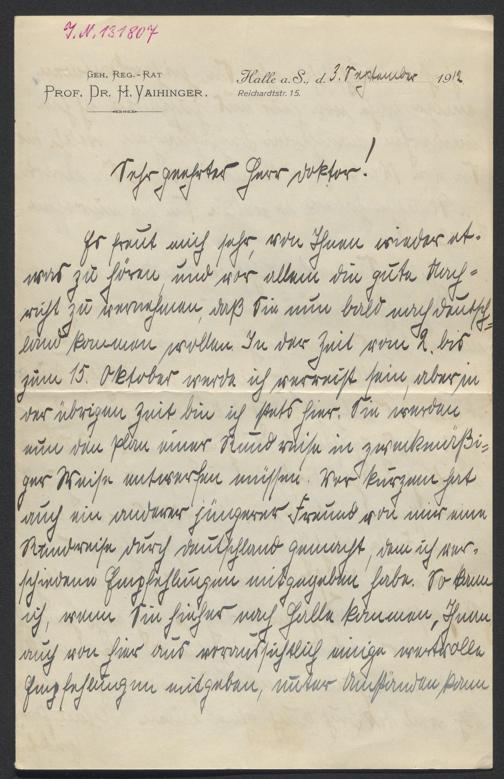 J.N. 131807
GEH. REG.-RAT
PROF. DR. H. VAIHINGER.
Halle a. S., d. 3. September 1912
Reichardtstr. 15.
Sehr geehrter Herr Doktor!
Es freut mich sehr, von Ihnen wieder et-
was zu hören, und vor allem die gute Nach-
richt zu vernehmen, daß Sie nun bald nach Deutsch-
land kommen wollen. In der Zeit vom 2. bis
zum 15. Oktober werde ich verreist sein, aber in
der übrigen Zeit bin ich stets hier. Sie werden
nun den Plan einer Rundreise in zweckmäßi-
ger Weise entwerfen müssen. Vor kurzem hat
auch ein anderer jüngerer Freund von mir eine
Rundreise durch Deutschland gemacht, dem ich ver-
schiedene Empfehlungen mitgegeben habe. So kann
ich, wenn Sie hieher nach Halle kommen, Ihnen
auch von hier aus voraussichtlich einige wertvolle
Empfehlungen mitgeben, unter Umständen kann